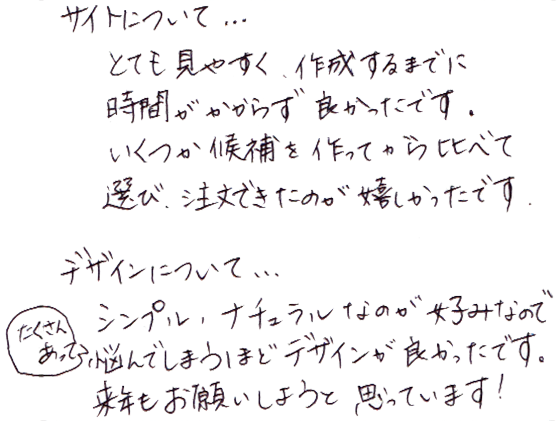 サイトについて…
とても見やすく、作成するまでに
時間がかからず良かったです。
いくつか候補を作ってから比べて
選び、注文できたのが嬉しかったです.
デザインについて…
シンプル、ナチュラルなのが好みなので
たくさん
あって
悩んでしまうほどデザインが良かったです。
来年もお願いしようと思っています!